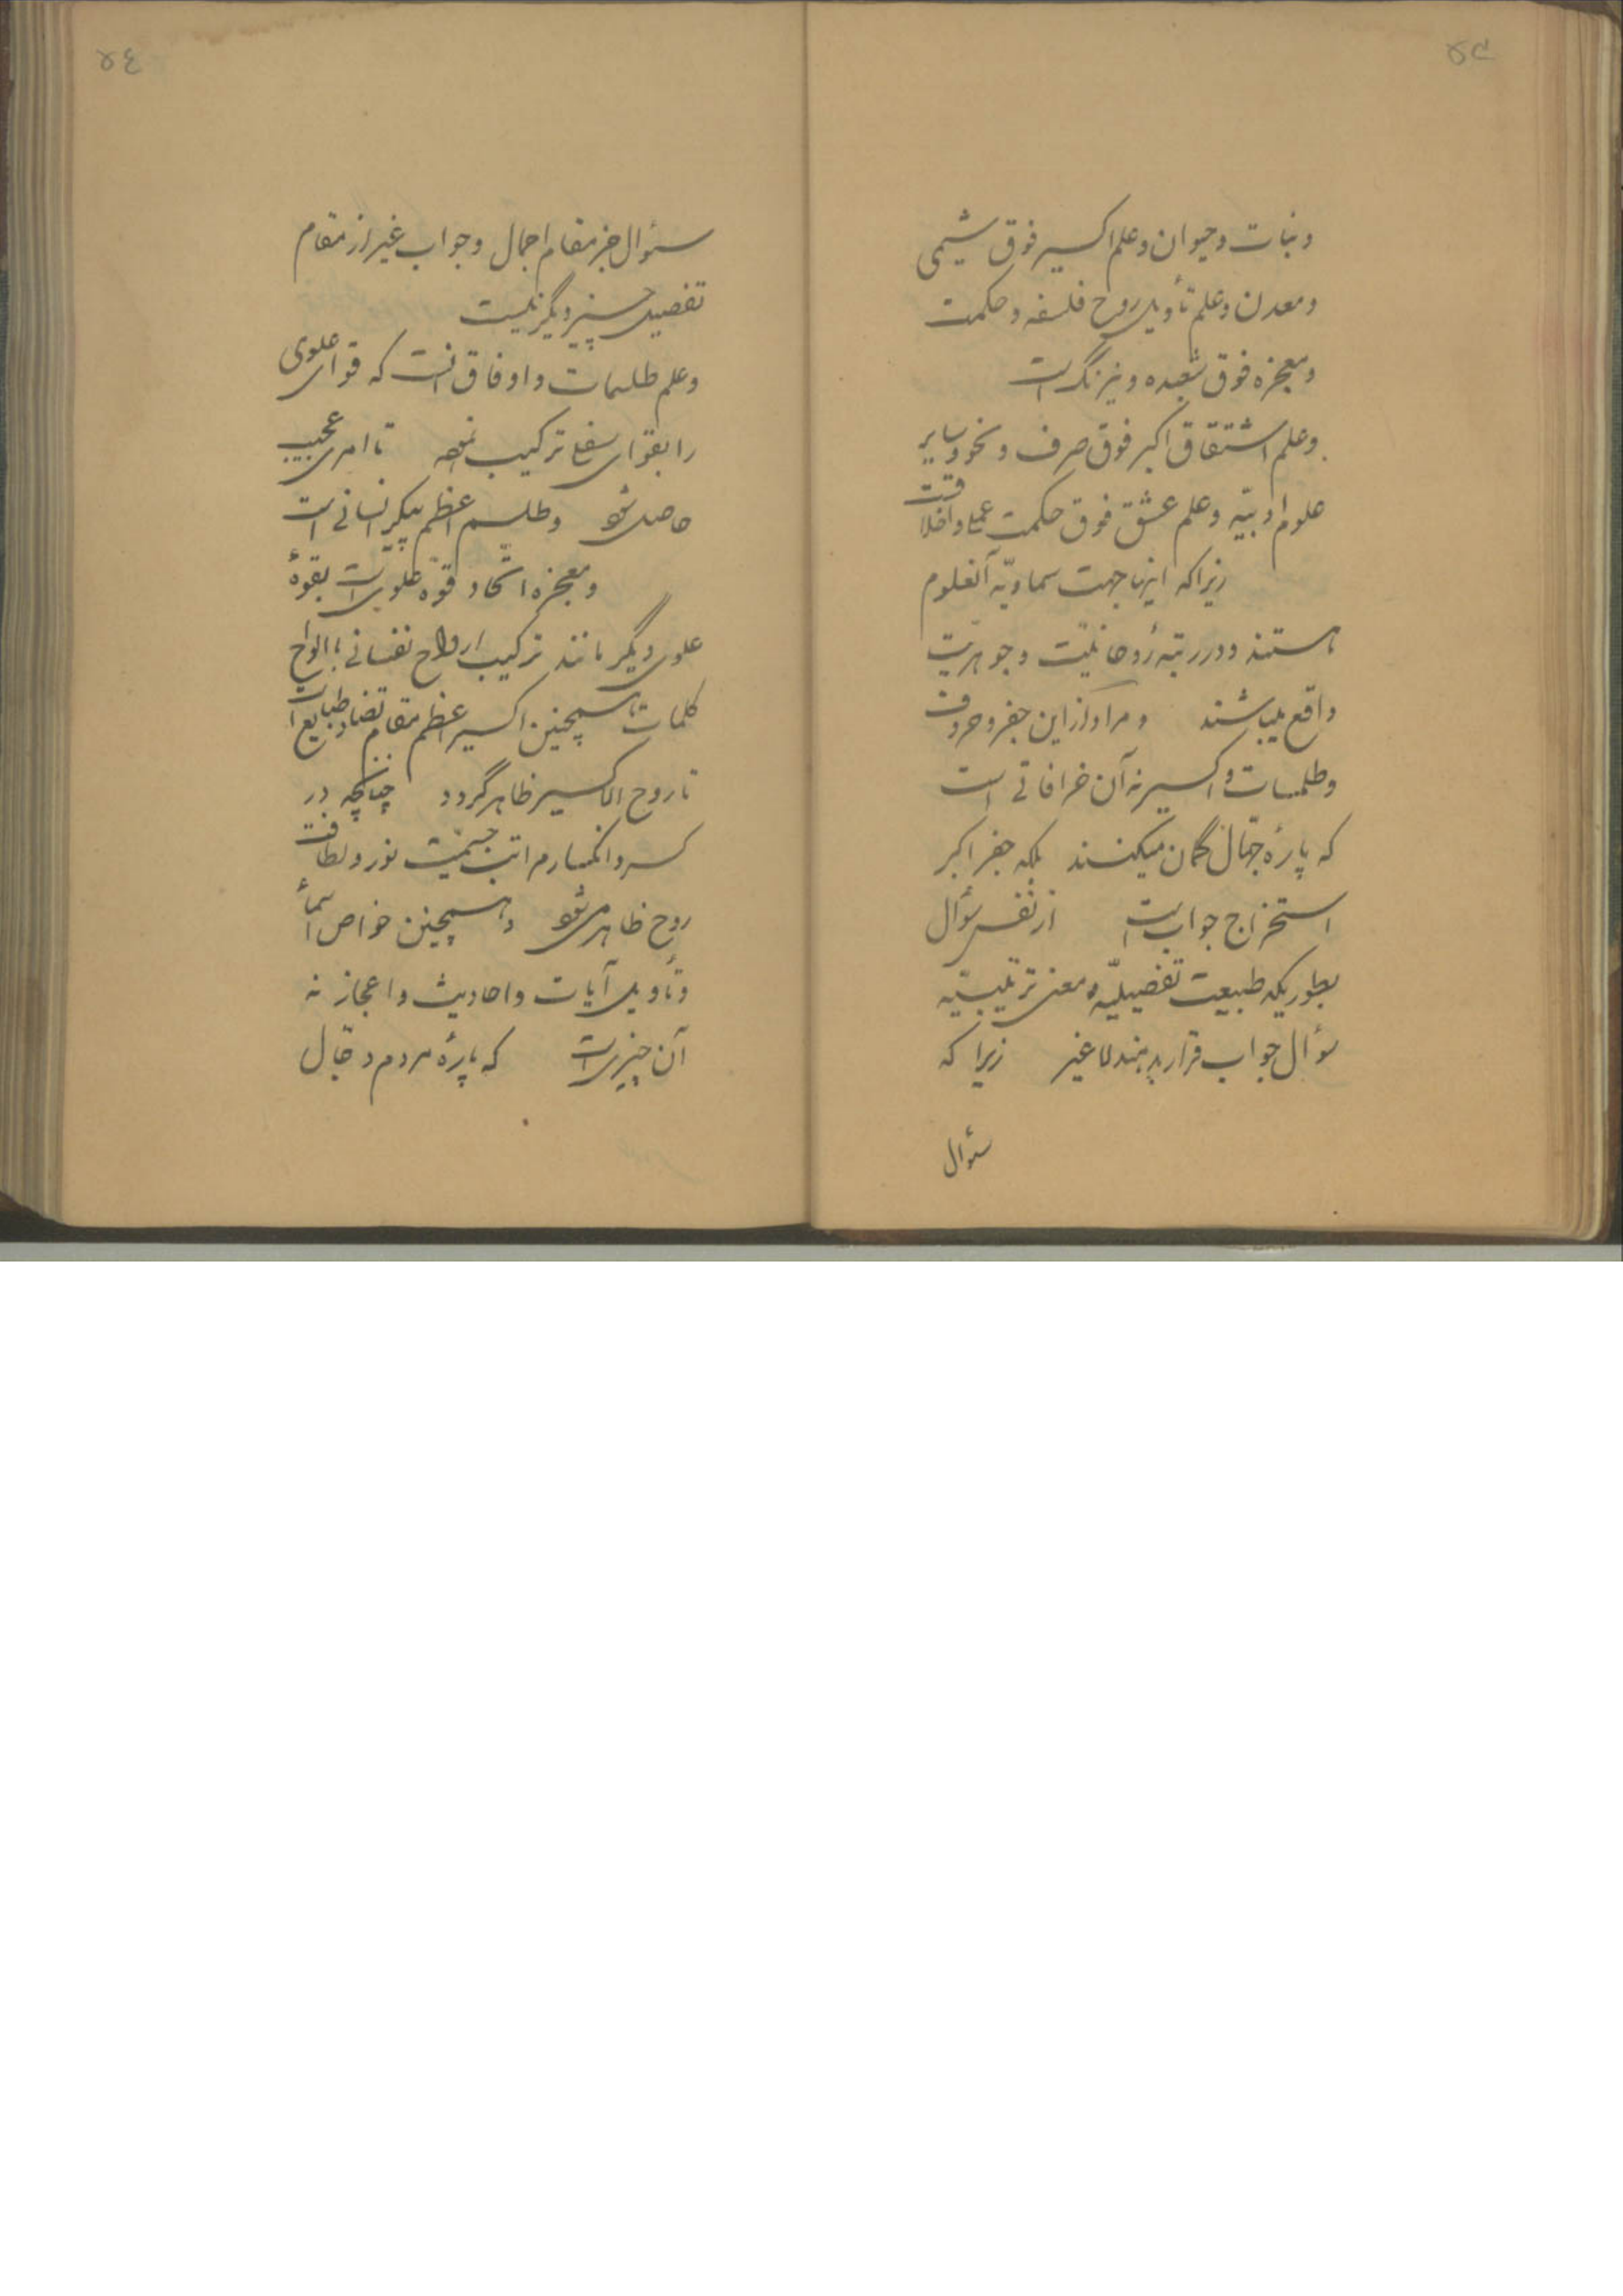 ۴۵
ونبات وحیوان وعلم اکسیر فوق شیمی
ومعدن وعلم تأویل روح فلسفه وحکمت
ومعجزه فوق شعبده ونیرنگ است
وعلم اشتقاق اکبر فوق صرف ونحو وسایر
علوم ادبیّه وعلم عشق فوق حکمت عملی واخلاقست
زیراکه اینها جهت سماویّه آنعلوم
هستند ودر رتبهٔ روحانیّت وجوهریت
واقع میباشند ومراد از این جفر وحروف
وطلسمات واکسیر نه آن خرافاتی است
که پارهٔ جهّال گمان میکنند بلکه جفر اکبر
استخراج جواب است از نفس سؤال
بطوریکه طبیعت تفصیلیّه معنی ترتیبیّه
سؤال جواب قرار بدهند لاغیر زیرا که
سؤال
۴۶
سؤال جز مقام اجمال وجواب غیر از مقام
تفصیل چیز دیگر نیست
وعلم طلسمات واوفاق آنست که قوای علوی
را بقوای سفلی ترکیب نموده تا امری عجیب
حاصل شود وطلسم اعظم پیکر انسانی است
ومعجزه اتحاد قوّه علوی است بقوهٔ
علوی دیگر مانند ترکیب ارواح نفسانی با الواح
کلمات همچنین اکسیر اعظم مقام تضاد طبایع است
تا روح الاکسیر ظاهر گردد چنانچه در
کسر وانکسار مراتب جسمیّت نور ولطافت
روح ظاهر می شود وهمچنین خواص اسمأ
وتأویل آیات واحادیث واعجاز نه
آن چیزی است که پارهٔ مردم دجال